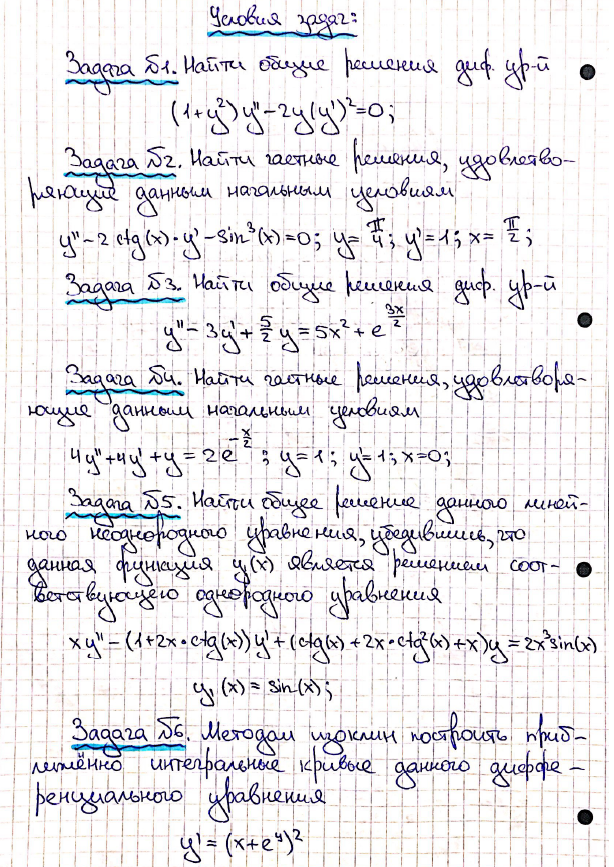 Условия задач:
Задача №1. Найти общие решения диф. ур-й
(1+y²)y''-2y(y')²=0;
Задача №2. Найти частные решения, удовлетво-
ряющие данным начальным условиям
y''-2ctg(x)·y'-sin³(x)=0; y=π/4; y'=1; x=π/2;
Задача №3. Найти общие решения диф. ур-й
y''-3y'+5/2y=5x²+e^(3x/2)
Задача №4. Найти частные решения, удовлетворя-
ющие данным начальным условиям
4y''+4y'+y=2e^(-x/2); y=1; y'=1; x=0;
Задача №5. Найти общее решение данного линей-
ного неоднородного уравнения, убедившись, что
данная функция y₁(x) является решением соот-
ветствующего однородного уравнения
xy''-(1+2x·ctg(x))y'+(ctg(x)+2x·ctg²(x)+x)y=2x³sin(x)
y₁(x)=sin(x);
Задача №6. Методом изоклин построить приб-
лижённо интегральные кривые данного диффе-
ренциального уравнения
y'=(x+e^y)²